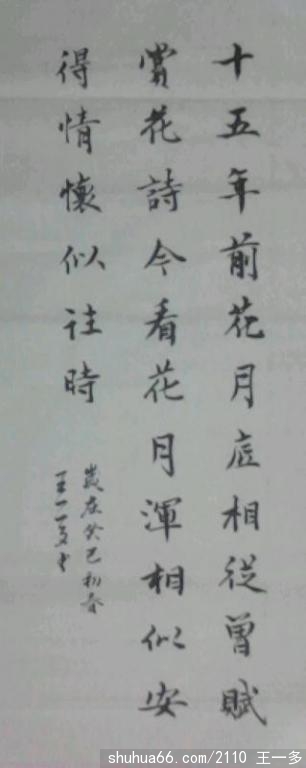 十五年前花月底相從曾賦
賞花詩今看花月渾相似安
得情懷似往時
歲在癸巳初春
王一多书
shuhua66.com/2110 王一多